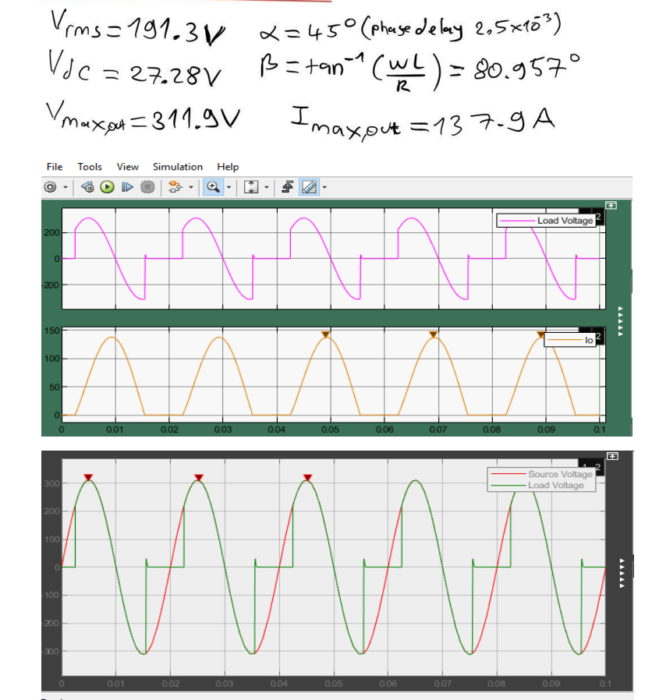 Vrms = 191.3V α = 45° (phase delay 2,5x10⁻³)
Vdc = 27.28V β = tan⁻¹ (WL/R) = 80.957°
Vmaxout = 311.9V Imaxout = 137.9A
File Tools View Simulation Help
Load Voltage 2
200
0
-200
150 Io 2
100
50
0
0 0.01 0.02 0.03 0.04 0.05 0.06 0.07 0.08 0.09 0.1
1 2
300 Source Voltage
Load Voltage
200
100
0
-100
-200
-300
0 0.01 0.02 0.03 0.04 0.05 0.06 0.07 0.08 0.09 0.1